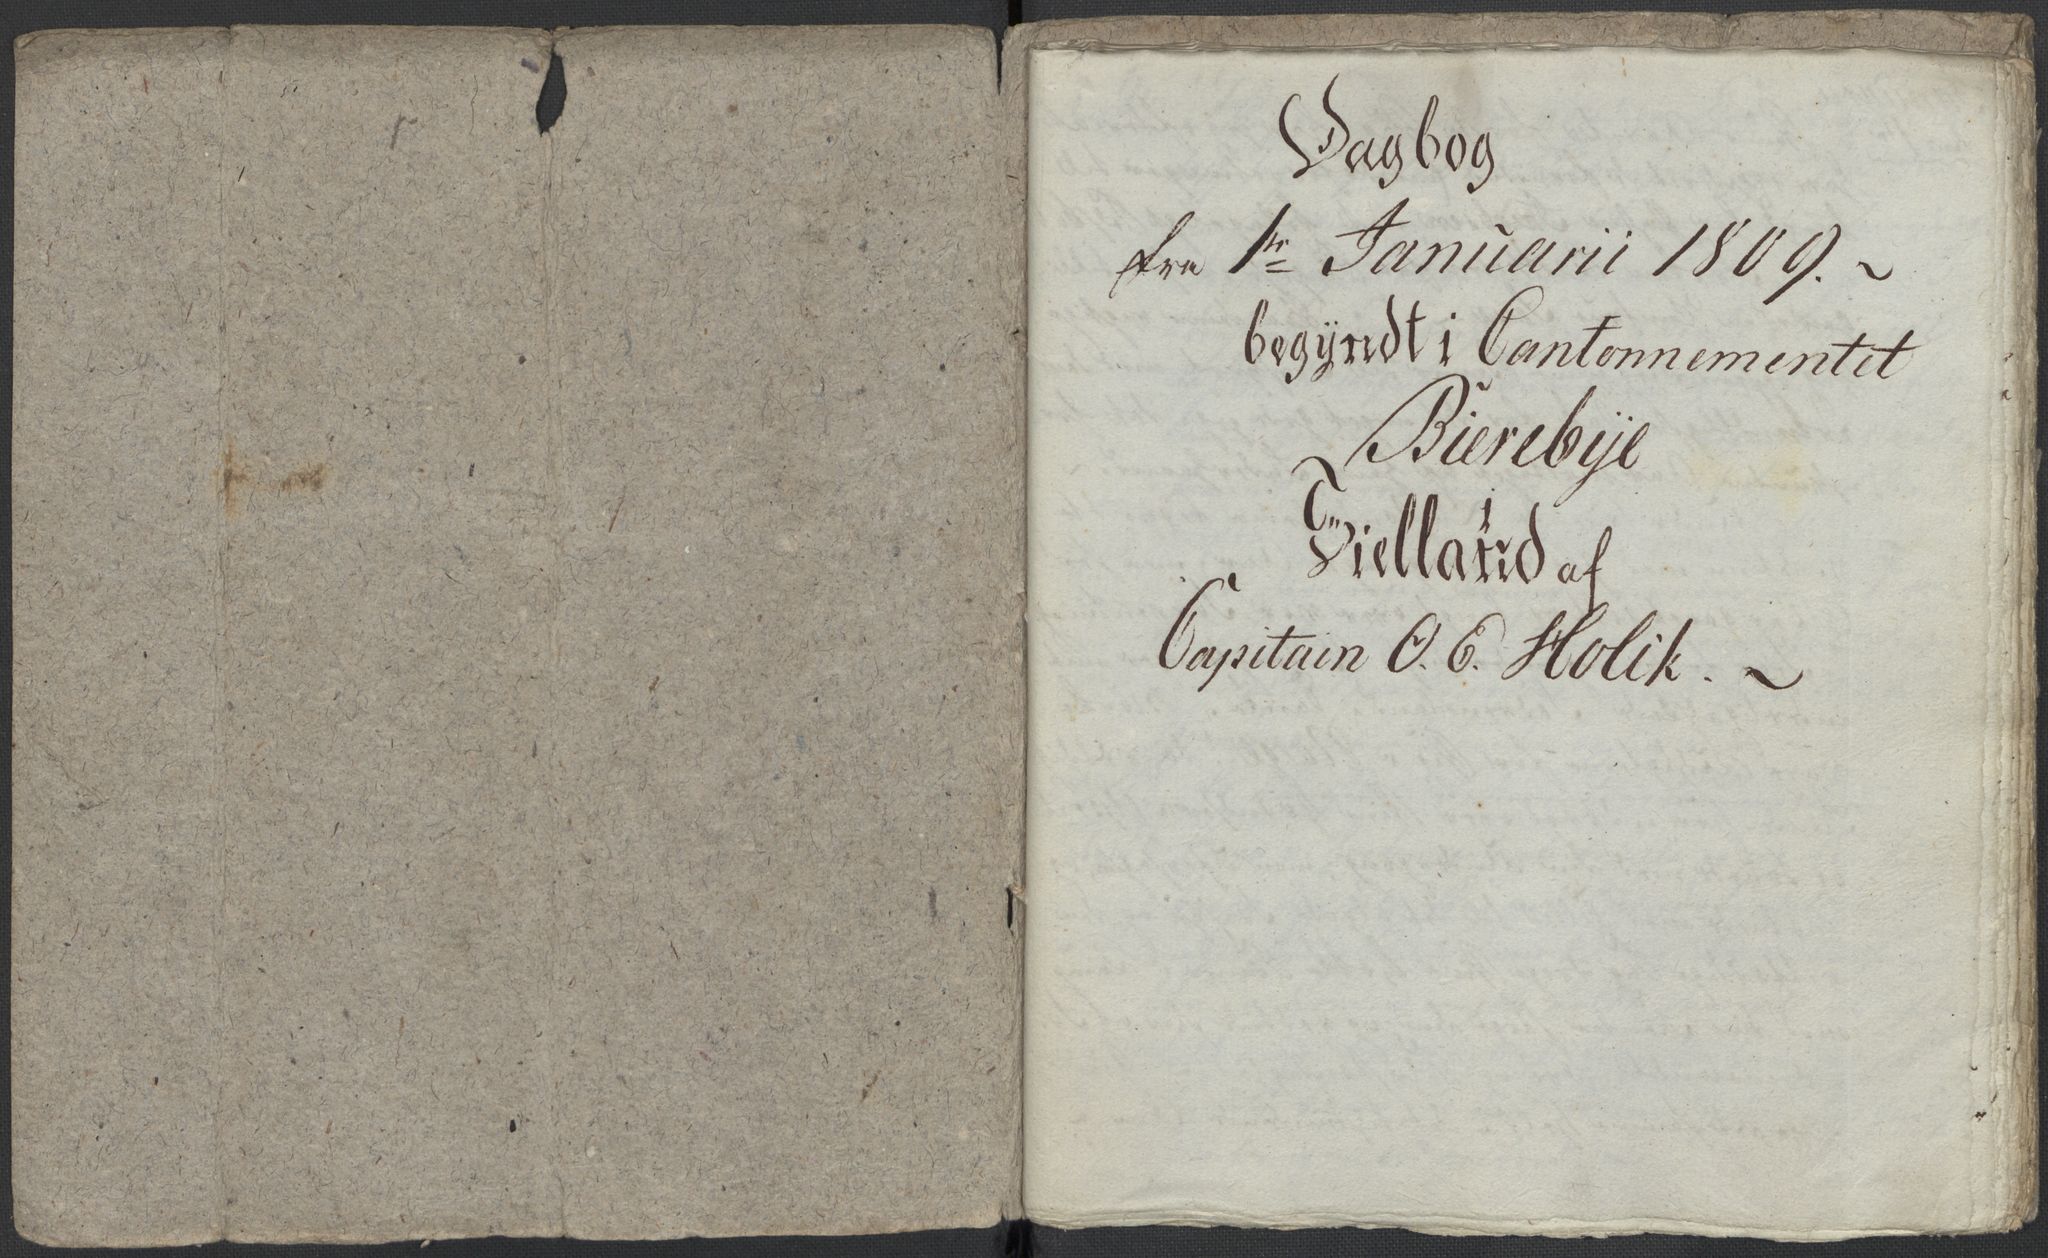 Dagbog
fra 1te Januarii 1809. ~
begyndt i Cantonnementet
Bierebye
i
Sielland af
Capitain O. E. Holik. ~